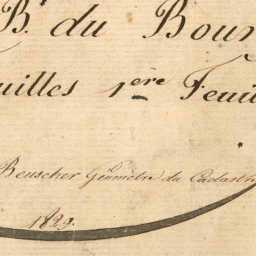 B. du Bour
uilles 1ère Feuil
Beuscher Géomètre du Cadastr